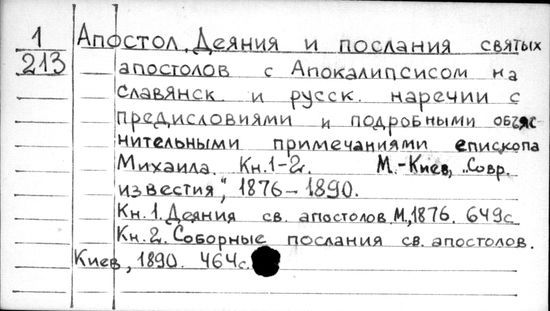 1
213
Апостол. Деяния и послания святых
апостолов с Апокалипсисом на
славянск. и русск. наречии с
предисловиями и подробными объяс-
нительными примечаниями епископа
Михаила. Кн.1-2. М.-Киев, „Совр.
известия", 1876-1890.
Кн.1. Деяния св. апостолов. М.,1876. 649с.
Кн.2. Соборные послания св. апостолов.
Киев, 1890. 464с.